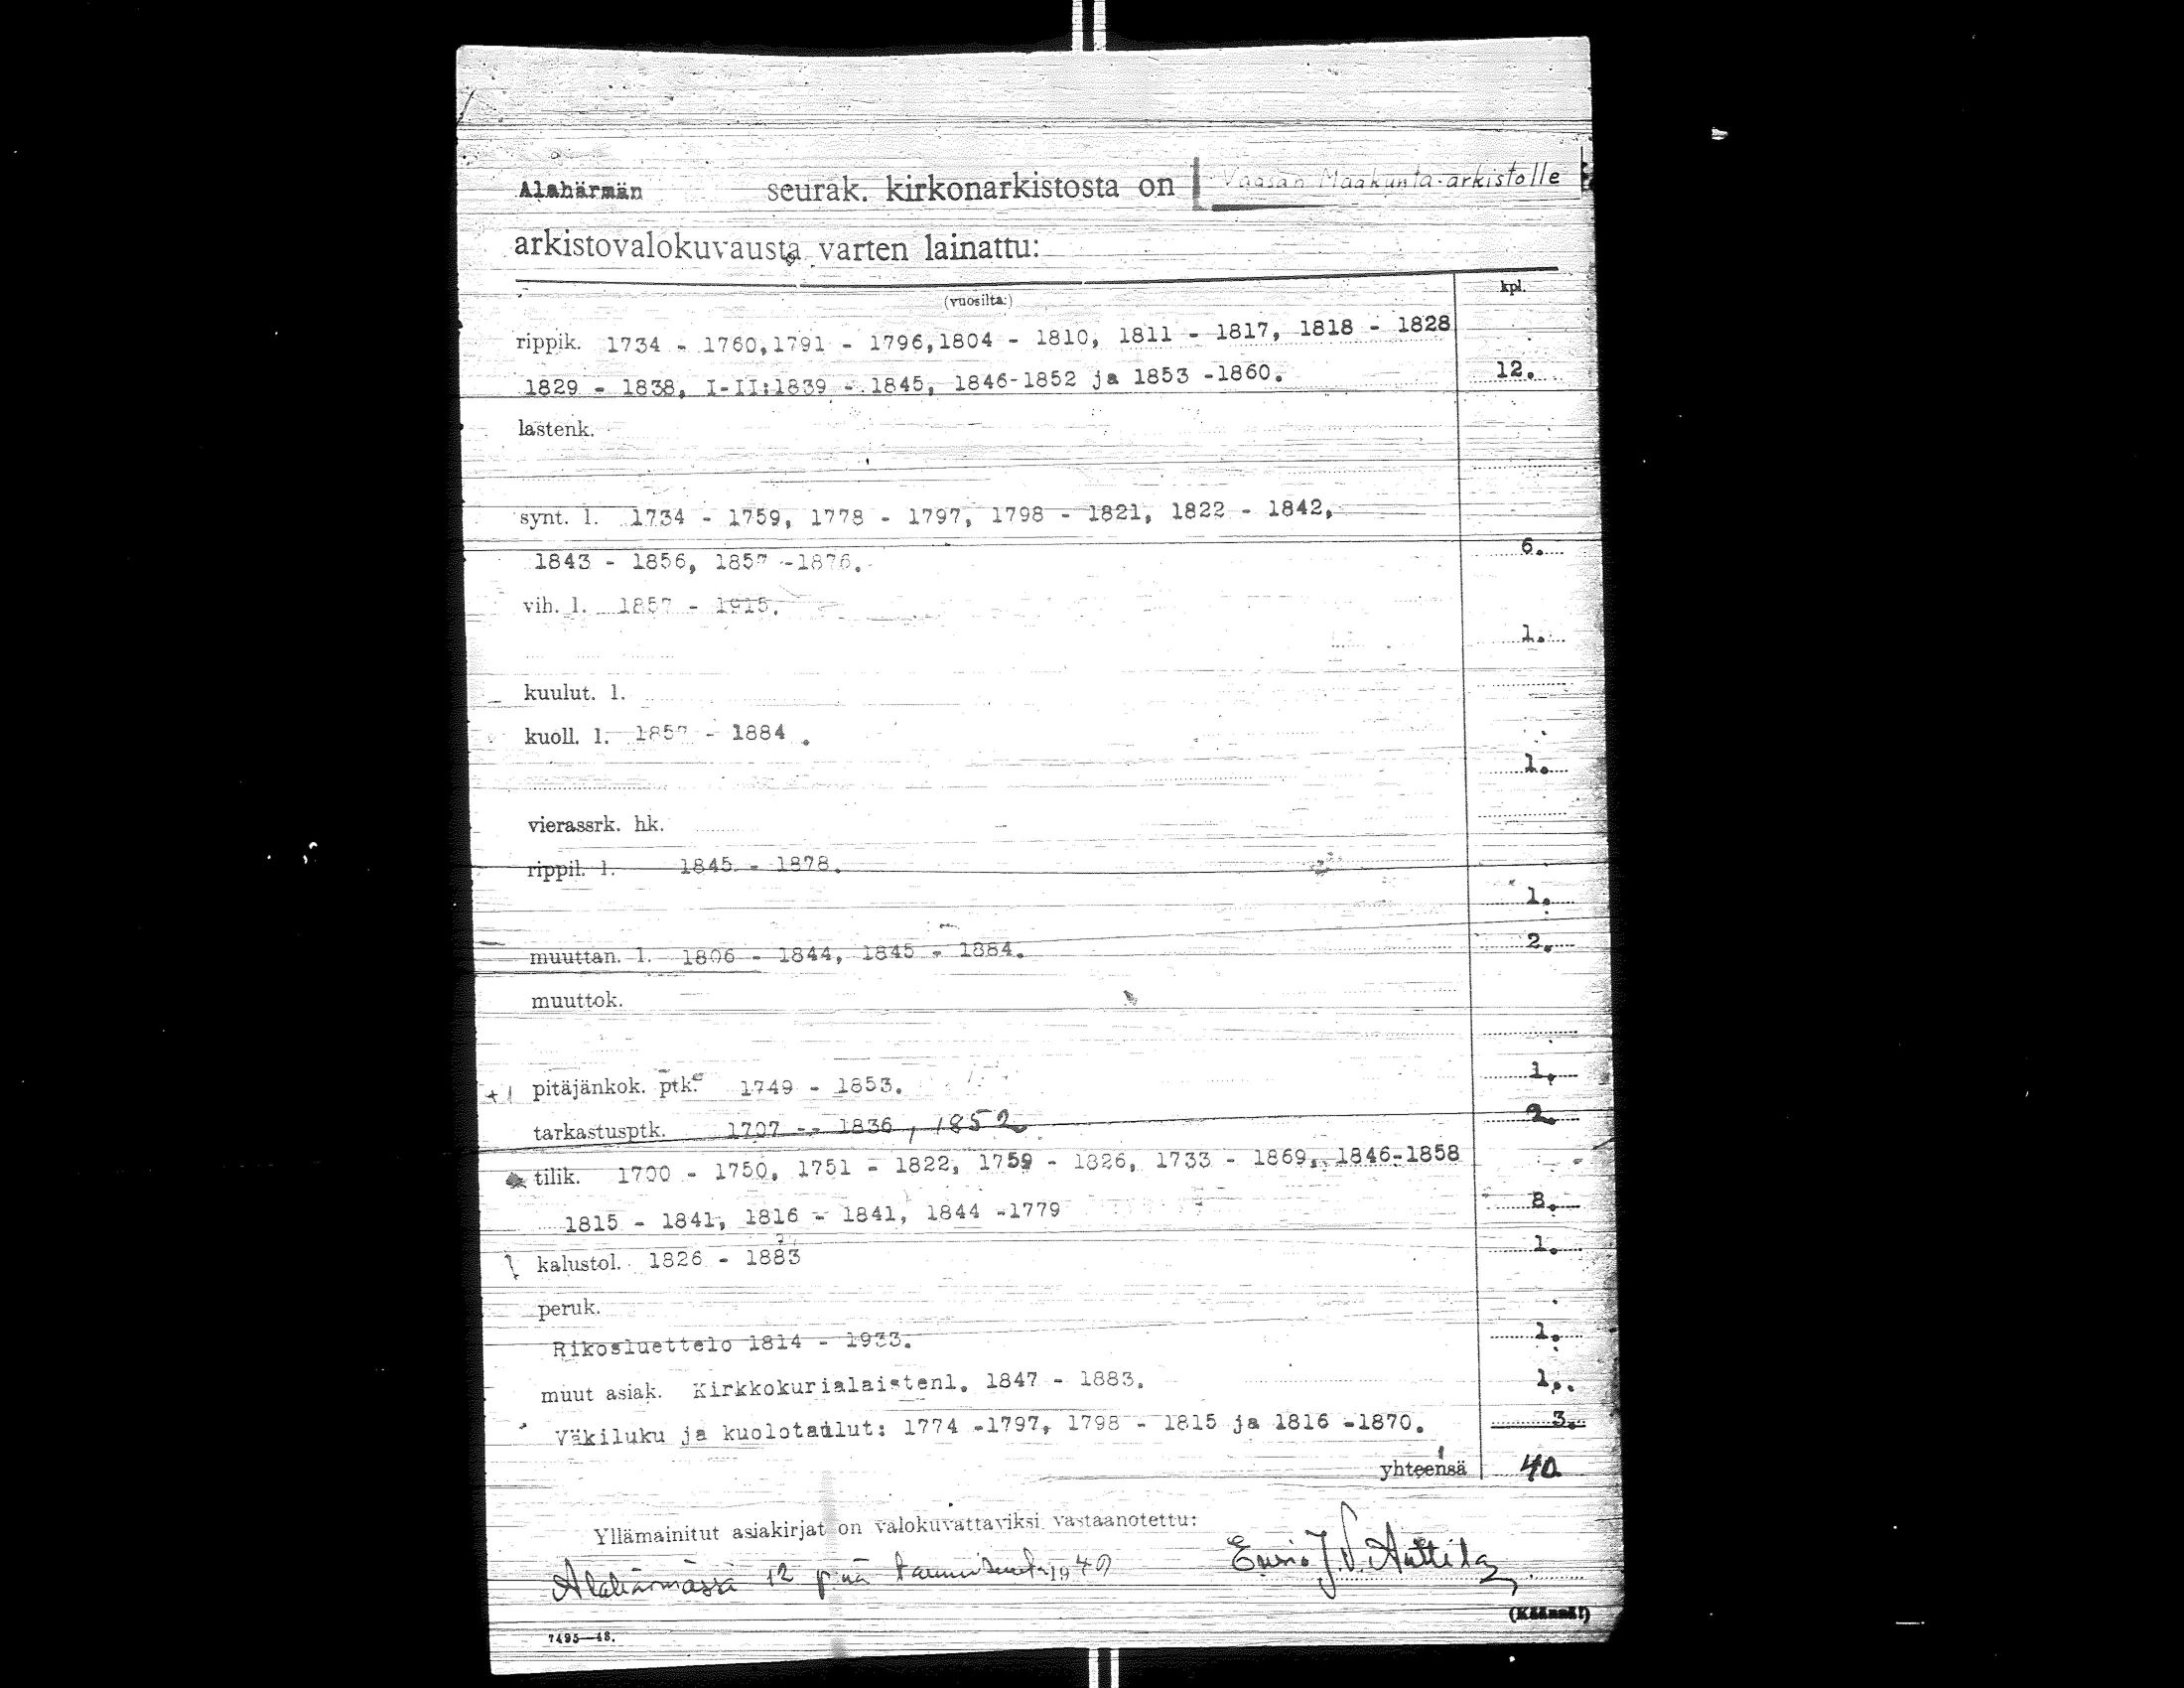 Alahärmän seurak. kirkonarkistosta on Vaasan Maakunta-arkistolle
arkistovalokuvausta varten lainattu:
(vuosilta:) kpl.
rippik. 1734 - 1760, 1791 - 1796, 1804 - 1810, 1811 - 1817, 1818 - 1828
1829 - 1838, I-II:1839 - 1845, 1846-1852 ja 1853 -1860. 12.
lastenk.
synt. l. 1734 - 1759, 1778 - 1797, 1798 - 1821, 1822 - 1842,
1843 - 1856, 1857 -1876. 6.
vih. l. 1857 - 1915.
1.
kuulut. l.
kuoll. l. 1857 - 1884.
1.
vierassrk. hk.
rippil. l. 1845 - 1878.
1.
muuttan. l. 1806 - 1844, 1845 - 1884. 2.
muuttok.
+1 pitäjänkok. ptk. 1749 - 1853. 1.
tarkastusptk. 1707 -- 1836, 1852 2.
tilik. 1700 - 1750, 1751 - 1822, 1759 - 1826, 1733 - 1869, 1846-1858
1815 - 1841, 1816 - 1841, 1844 -1779 8.
kalustol. 1826 - 1883 1.
peruk.
Rikosluettelo 1814 - 1933. 1.
muut asiak. Kirkkokurialaistenl. 1847 - 1883. 1.
Väkiluku ja kuolotaulut: 1774 -1797, 1798 - 1815 ja 1816 -1870. 3.
yhteensä 40
Yllämainitut asiakirjat on valokuvattaviksi vastaanotettu:
Alahärmässä 12 p:nä tammikuuta 1949
(Käännä!)
7495—48.